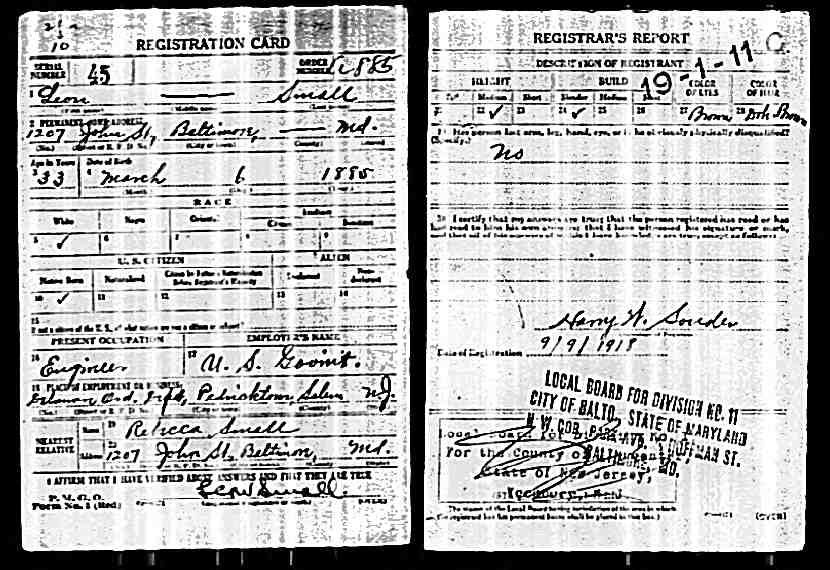 REGISTRATION CARD
SERIAL NUMBER 45
ORDER NUMBER
1 Leon Small
2 PERMANENT HOME ADDRESS
1207 John St, Baltimore, Md.
Age in Years Date of Birth
33 March 6 1885
RACE
White Negro
5 ✓ 6 7 8 9
U. S. CITIZEN ALIEN
Native Born Naturalized
10 ✓ 11 12 13 14
15
PRESENT OCCUPATION EMPLOYER'S NAME
16 Engineer 17 U. S. Govmt.
18 PLACE OF EMPLOYMENT OR BUSINESS
Delaware Ord. Dept, Pedricktown, Salem N.J.
NEAREST RELATIVE
Name 19 Rebecca Small
Address 20 1207 John St. Baltimore, Md.
I AFFIRM THAT I HAVE VERIFIED ABOVE ANSWERS AND THAT THEY ARE TRUE
P. M. G. O.
Form No. 1 (Red)
Leon Small.
REGISTRAR'S REPORT
19-1-11 C.
DESCRIPTION OF REGISTRANT
HEIGHT BUILD COLOR OF EYES COLOR OF HAIR
Tall Medium Short Slender Medium
22 ✓ 23 24 ✓ 25 26 27 Brown 28 Brown
29 Has person lost arm, leg, hand, eye, or is he obviously physically disqualified?
(Specify.)
No
30 I certify that my answers are true; that the person registered has read or has
had read to him his own answers; that I have witnessed his signature or mark,
and that all of his answers of which I have knowledge are true, except as follows:
Harry W. Souder
Date of Registration 9/9/1918
LOCAL BOARD FOR DIVISION NO. 11
CITY OF BALTO., STATE OF MARYLAND
N. W. COR. PARK AVE. & HOFFMAN ST.
BALTIMORE, MD.
For the County of
State of New Jersey,
(The stamp of the Local Board having jurisdiction of the area in which
the registrant has his permanent home shall be placed in this box.)
(OVER)